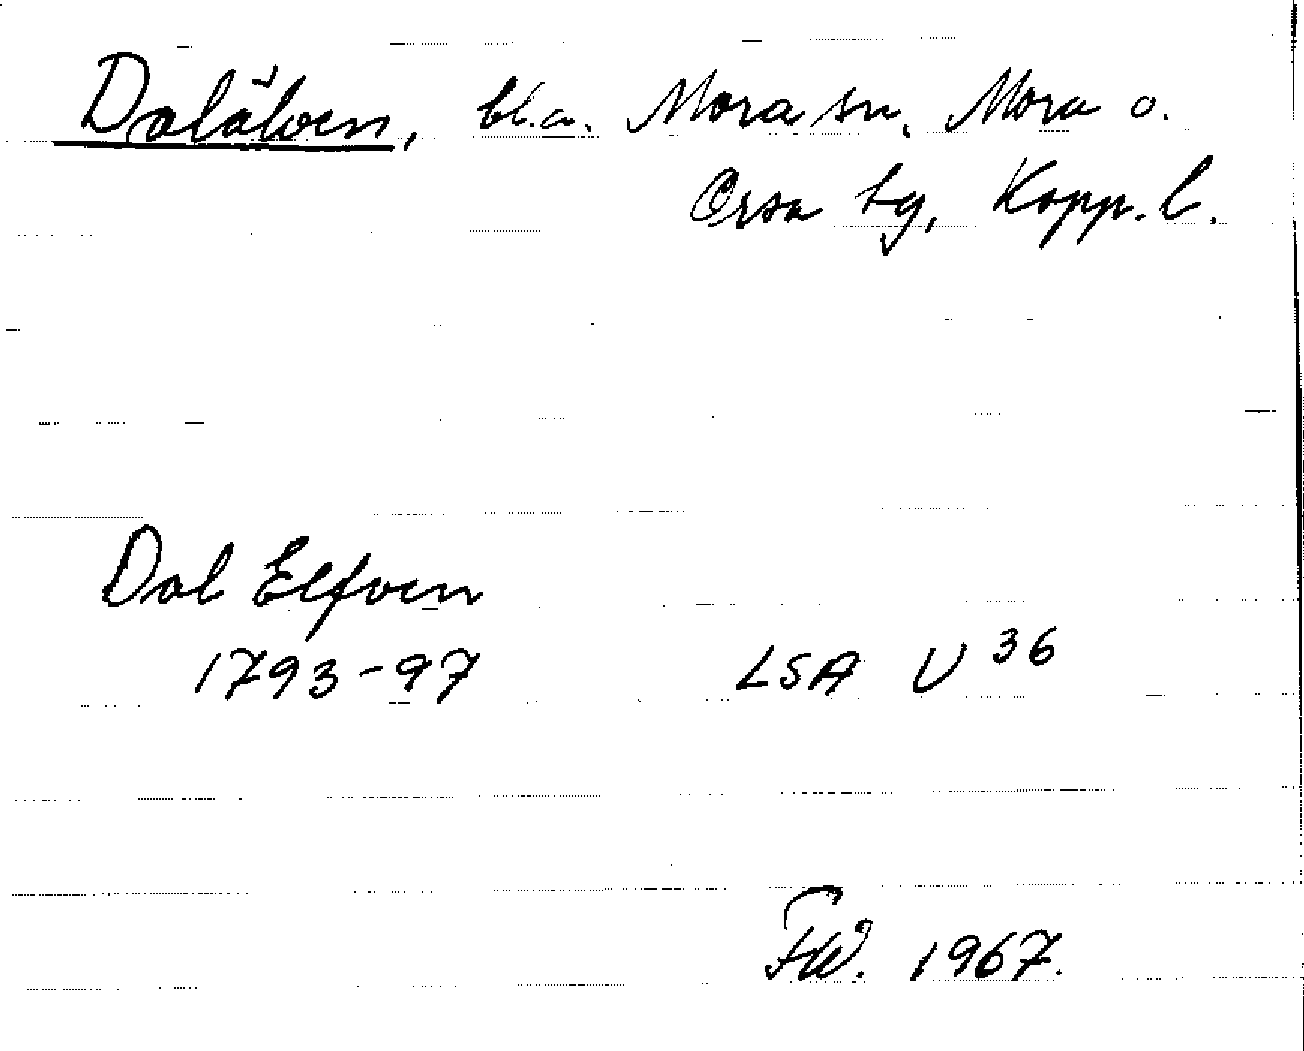 Dalälven, bl.a. Mora sn, Mora o.
Orsa tg, Kopp. l.
Dal Elfven
1793-97 LSA U 36
FW. 1967.